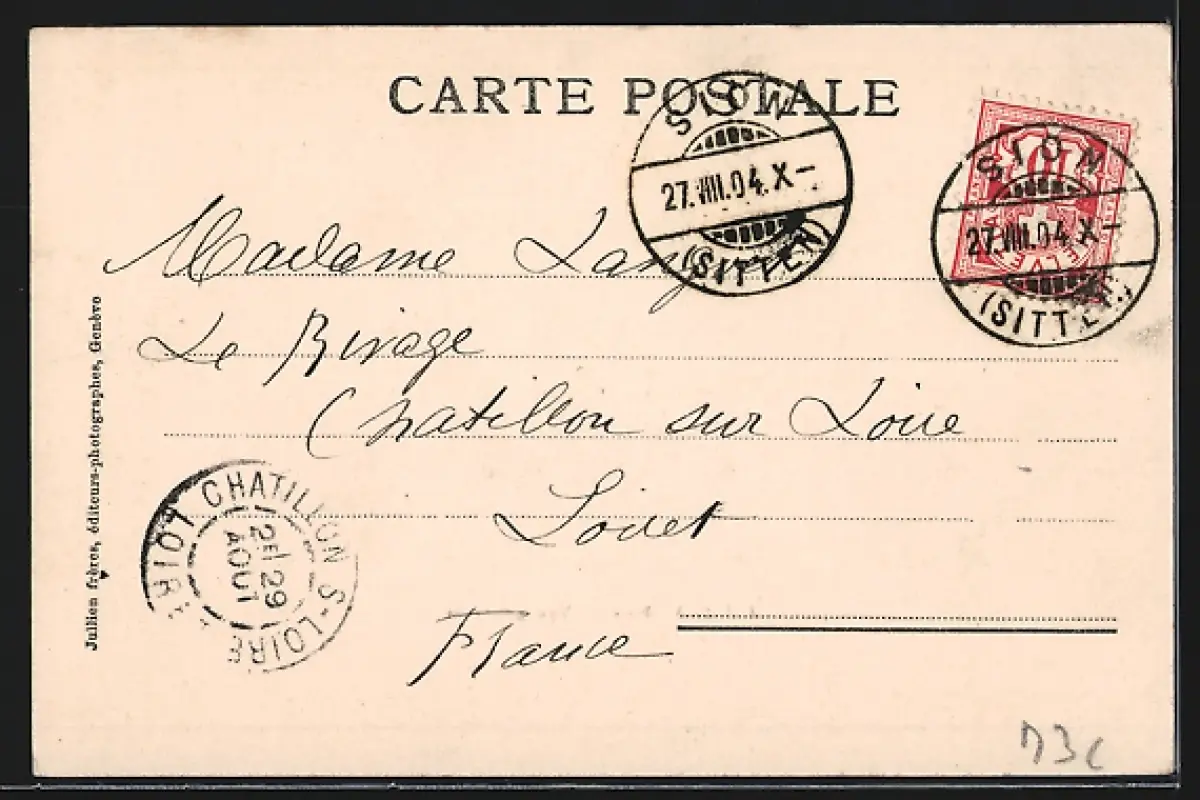 CARTE POSTALE
SION
27.VIII.04.X–
(SITTEN)
10
HELVETIA
SION
27.VIII.04.X–
(SITTEN)
Madame
Le Rivage
Chatillon sur Loire
Loiret
France
Jullien frères, éditeurs-photographes, Genève
CHATILLON S-LOIRE
2E/29
AOUT
LOIRET